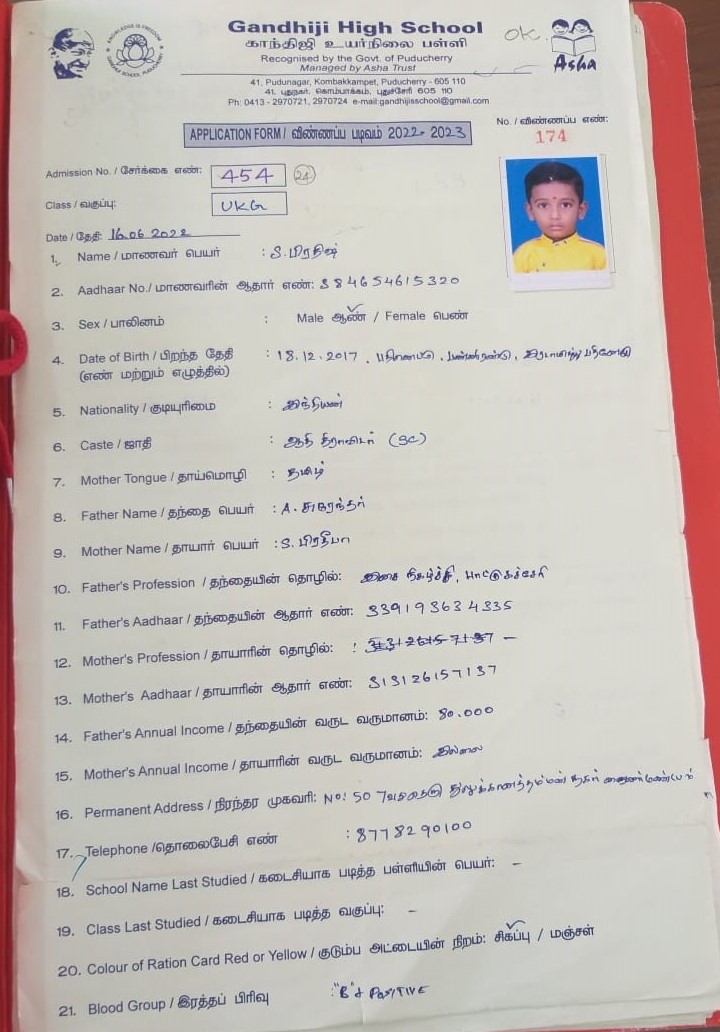 Gandhiji High School
காந்திஜி உயர்நிலை பள்ளி
Recognised by the Govt. of Puducherry
Managed by Asha Trust
41, Pudunagar, Kombakkampet, Puducherry - 605 110
41, புதுநகர், கொம்பாக்கம், புதுச்சேரி 605 110
Ph: 0413 - 2970721, 2970724 e-mail:gandhijisschool@gmail.com
OK.
Asha
APPLICATION FORM / விண்ணப்ப படிவம் 2022- 2023
No. / விண்ணப்ப எண்:
174
Admission No. / சேர்க்கை எண்: 454 24
Class / வகுப்பு: UKG
Date / தேதி: 16.06 2022
1. Name / மாணவர் பெயர் : S.பிரதிஷ்
2. Aadhaar No./ மாணவரின் ஆதார் எண்: 384654615320
3. Sex / பாலினம் : Male ஆண் / Female பெண்
4. Date of Birth / பிறந்த தேதி : 18.12.2017 .
(எண் மற்றும் எழுத்தில்)
5. Nationality / குடியுரிமை : இந்தியன்
6. Caste / ஜாதி : ஆதி திராவிடர் (SC)
7. Mother Tongue / தாய்மொழி : தமிழ்
8. Father Name / தந்தை பெயர் : A. சுரேந்தர்
9. Mother Name / தாயார் பெயர் : S. பிரதீபா
10. Father's Profession / தந்தையின் தொழில்: இசை நிகழ்ச்சி,
11. Father's Aadhaar / தந்தையின் ஆதார் எண்: 339193634335
12. Mother's Profession / தாயாரின் தொழில்: : –
13. Mother's Aadhaar / தாயாரின் ஆதார் எண்: 313126157137
14. Father's Annual Income / தந்தையின் வருட வருமானம்: 80.000
15. Mother's Annual Income / தாயாரின் வருட வருமானம்: இல்லை
16. Permanent Address / நிரந்தர முகவரி: No: 50
17. Telephone /தொலைபேசி எண் : 8778290100
18. School Name Last Studied / கடைசியாக படித்த பள்ளியின் பெயர்: –
19. Class Last Studied / கடைசியாக படித்த வகுப்பு: –
20. Colour of Ration Card Red or Yellow / குடும்ப அட்டையின் நிறம்: சிகப்பு / மஞ்சள்
21. Blood Group / இரத்தப் பிரிவு : "B" + POSITIVE